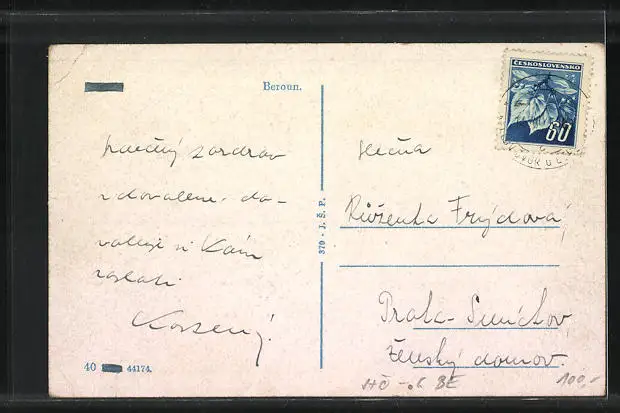 Beroun.
ČESKOSLOVENSKO
60
Srdečný pozdrav
z dovolené do-
voluji si Vám
zaslati
Slečna
Růženka Frýdová,
Praha - Smíchov
Ženský domov.
370 - J. Š. P.
40
44174.
100,-